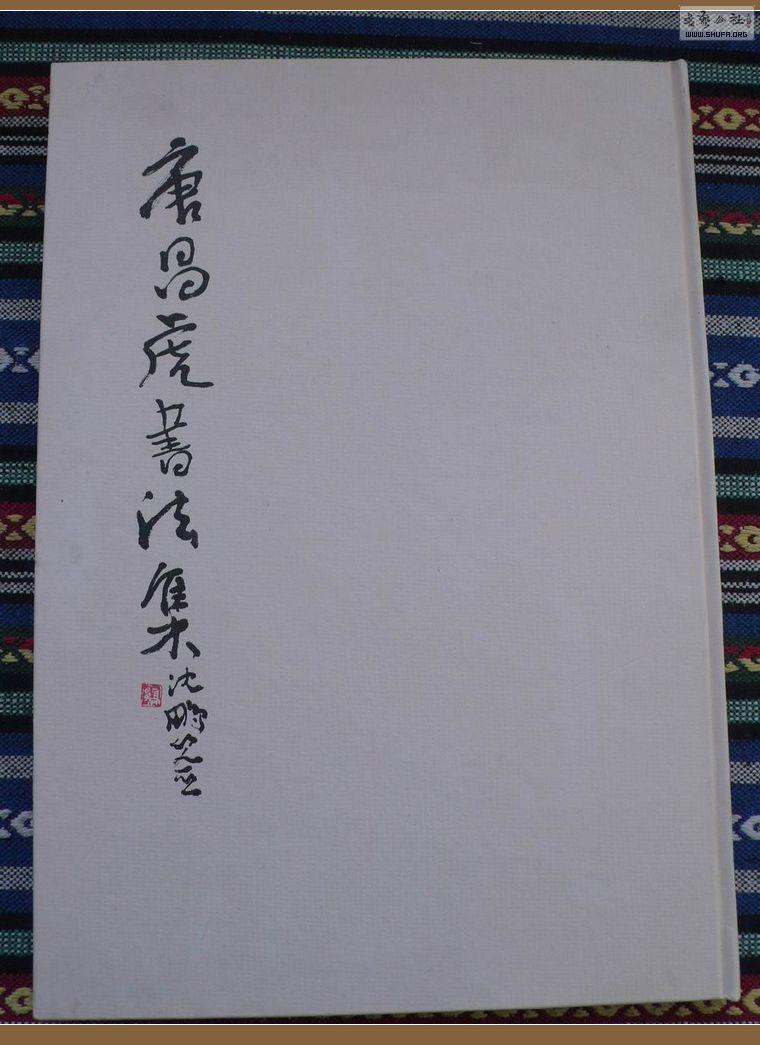 唐昌虎书法集
沈鹏
书艺公社
WWW.SHUFA.ORG